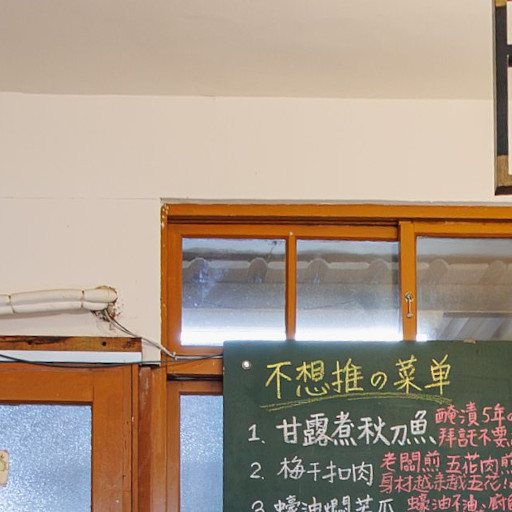 不想推の菜单
1. 甘露煮秋刀魚
醃漬5年
拜託不要
2. 梅干扣肉
老闆煎五花肉煎
身材越來越五花!
3. 蠔油燜苦瓜
蠔油不油、廚師